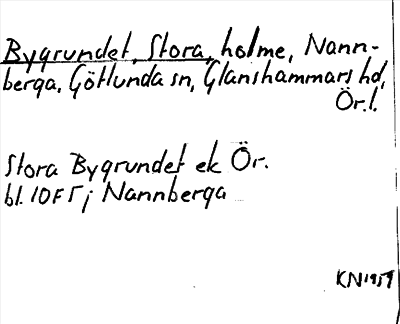 Bygrundet, Stora, holme, Nann-
berga, Götlunda sn, Glanshammars hd,
Ör.l.
Stora Bygrundet ek Ör.
bl. 10F5j Nannberga
KN 1959